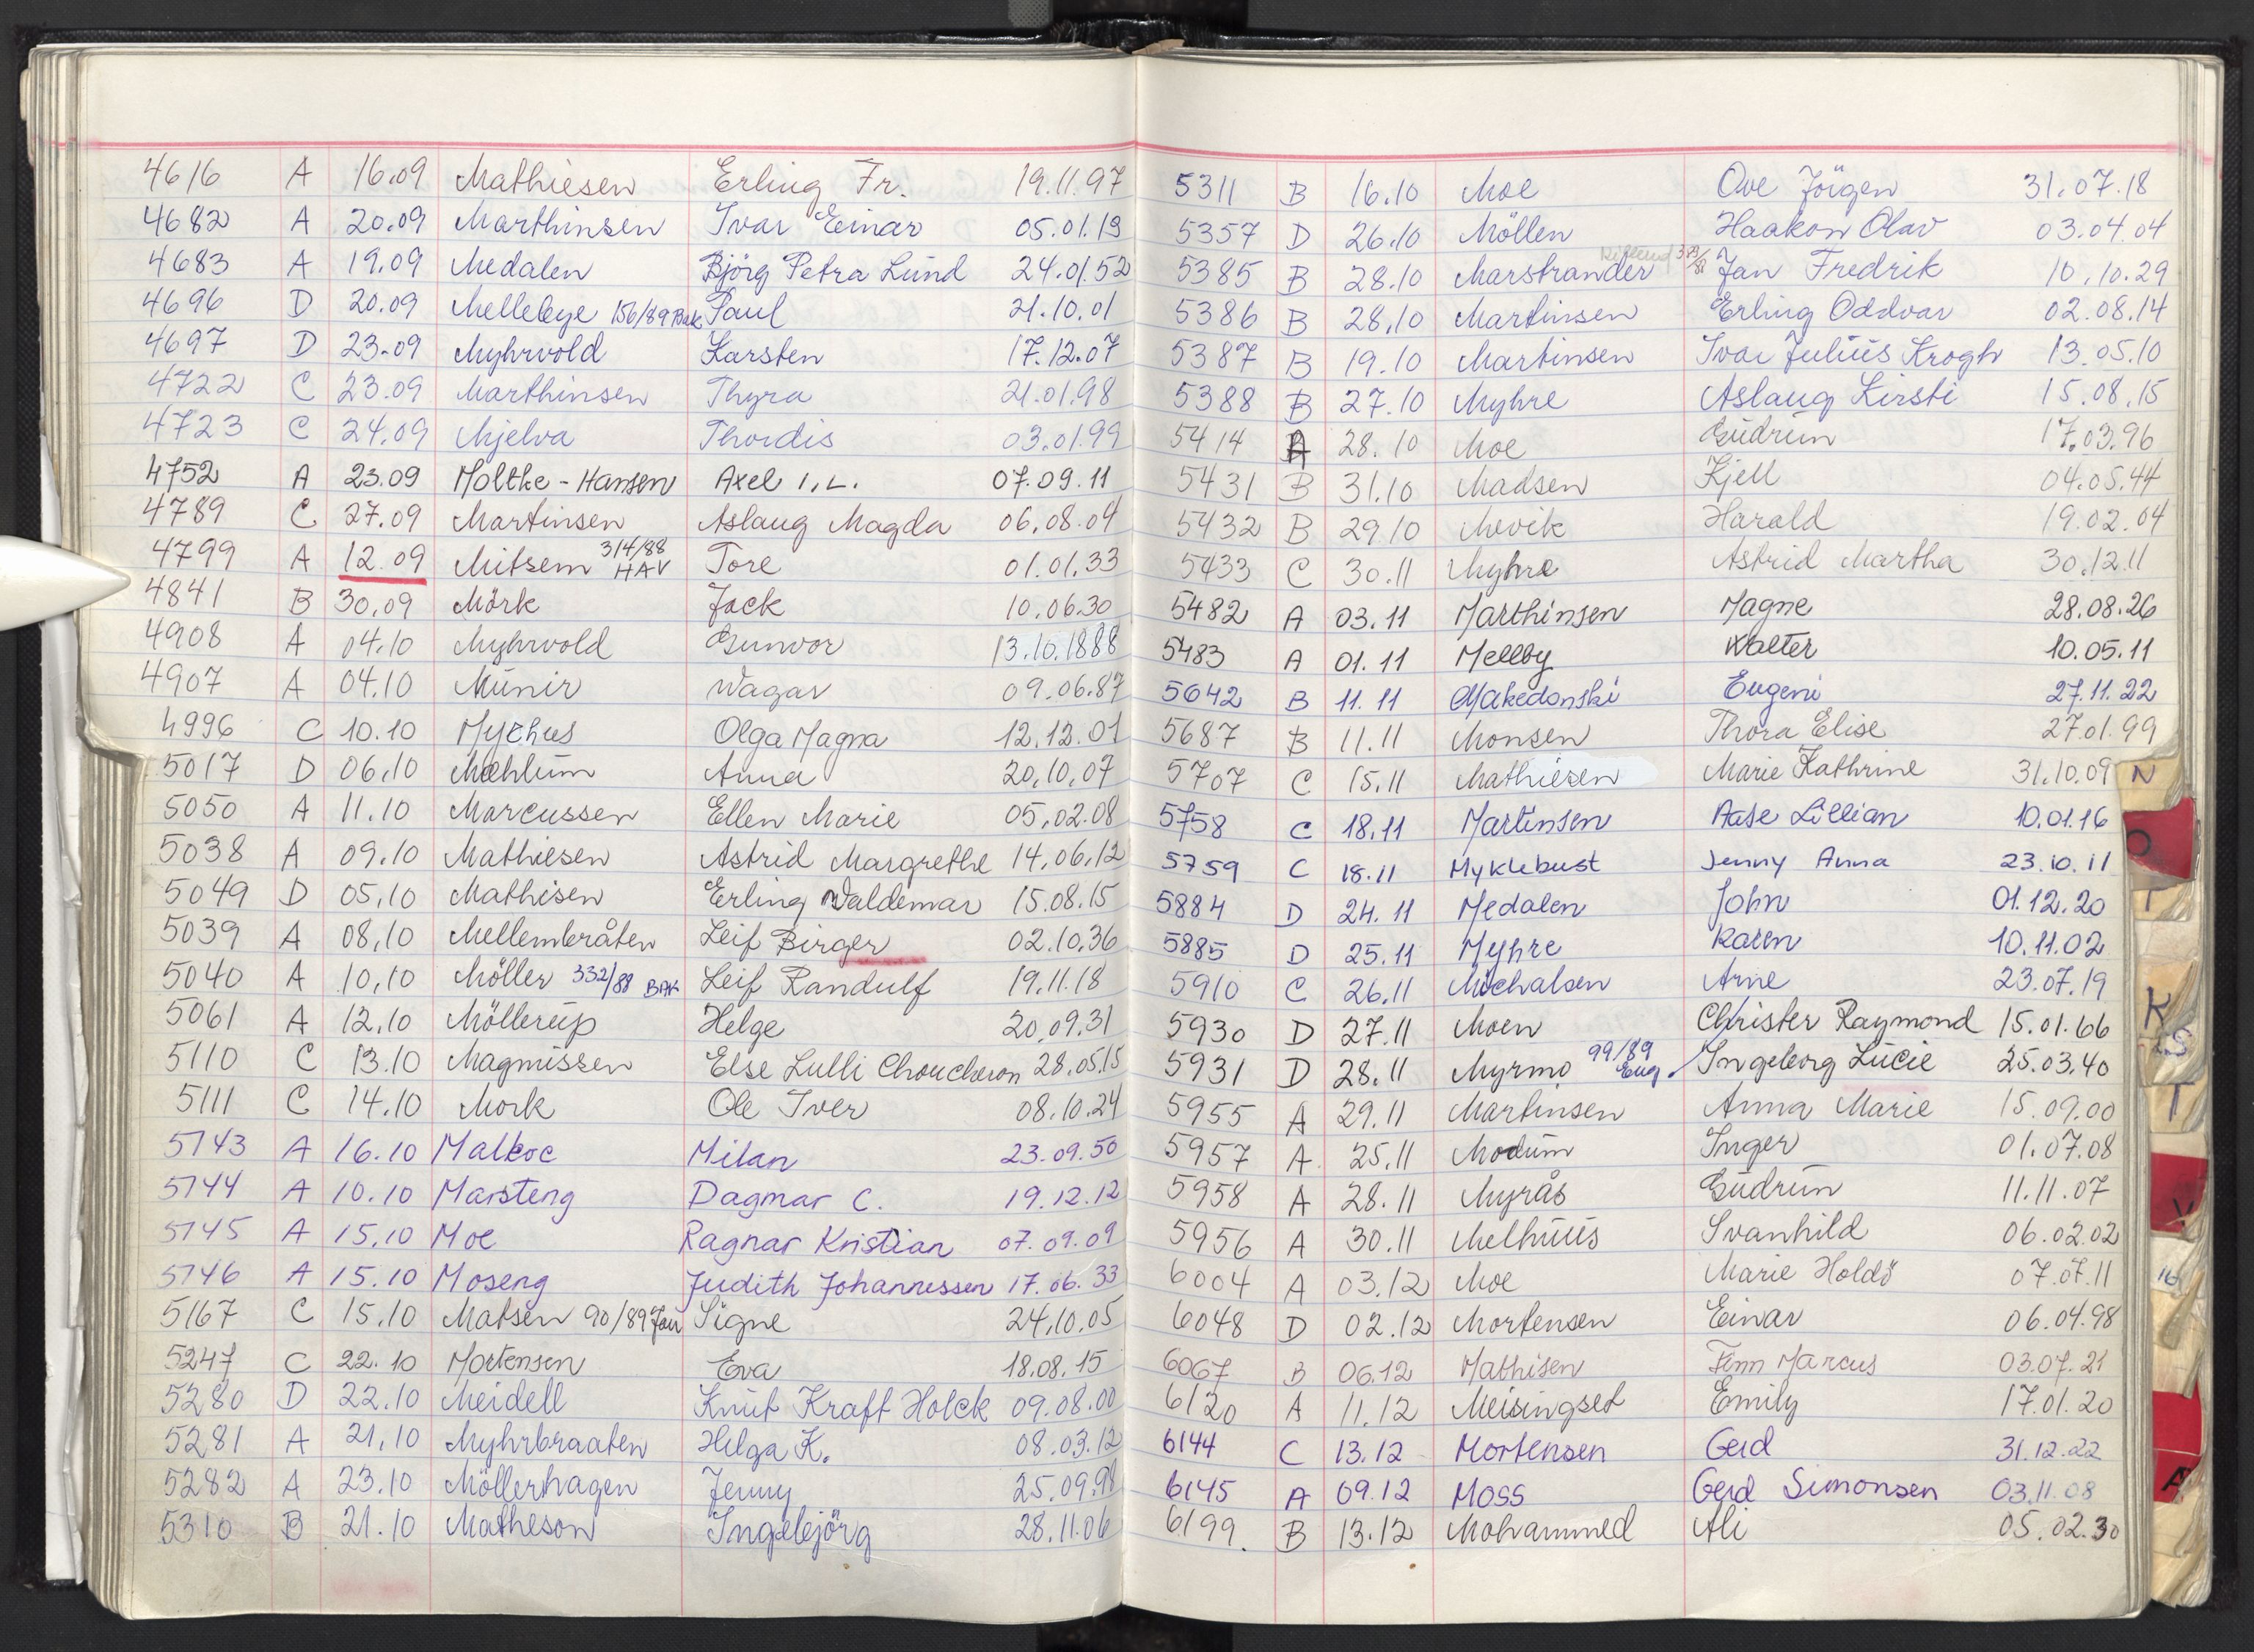 4616 A 16.09 Mathiesen Erling Fr. 19.11.97
4682 A 20.09 Marthinsen Ivar Einar 05.01.19
4683 A 19.09 Medalen Björg Petra Lund 24.01.52
4696 D 20.09 Mellebye 156/89 Bak Paul 21.10.01
4697 D 23.09 Myhrvold Karsten 17.12.07
4722 C 23.09 Marthinsen Thyra 21.01.98
4723 C 24.09 Mjelva Thordis 03.01.99
4752 A 23.09 Moltke-Hansen Axel I.L. 07.09.11
4789 C 27.09 Martinsen Aslaug Magda 06.08.04
4799 A 12.09 Mitsem 314/88 HAV Tore 01.01.33
4841 B 30.09 Mörk Jack 10.06.30
4908 A 04.10 Myhrvold Gunvor 13.10.1888
4907 A 04.10 Munir Wagar 09.06.87
4996 C 10.10 Myrhus Olga Magna 12.12.01
5017 D 06.10 Mæhlum Anna 20.10.07
5050 A 11.10 Marcussen Ellen Marie 05.02.08
5038 A 09.10 Mathiesen Astrid Margrethe 14.06.12
5049 D 05.10 Mathisen Erling Waldemar 15.08.15
5039 A 08.10 Mellembråten Leif Birger 02.10.36
5040 A 10.10 Möller 332/88 BAK Leif Randulf 19.11.18
5061 A 12.10 Möllerup Helge 20.09.31
5110 C 13.10 Magnussen Else Lulli Choucheron 28.05.15
5111 C 14.10 Mork Ole Iver 08.10.24
5143 A 16.10 Malkoc Milan 23.09.50
5144 A 10.10 Marsteng Dagmar C. 19.12.12
5145 A 15.10 Moe Ragnar Kristian 07.09.09
5146 A 15.10 Moseng Judith Johannessen 17.06.33
5167 C 15.10 Matsen 90/89 Jan Signe 24.10.05
5247 C 22.10 Mortensen Eva 18.08.15
5280 D 22.10 Meidell Knut Kraft Holck 09.08.00
5281 A 21.10 Myhrbraaten Helga K. 08.03.12
5282 A 23.10 Möllerhagen Jenny 25.09.98
5310 B 21.10 Matheson Ingebjörg 28.11.06
5311 B 16.10 Moe Ove Jörgen 31.07.18
5357 D 26.10 Möllen Haakon Olav 03.04.04
5385 B 28.10 Marstrander Jan Fredrik 10.10.29
5386 B 28.10 Martinsen Erling Oddvar 02.08.14
5387 B 19.10 Martinsen Ivar Julius Krogh 13.05.10
5388 B 27.10 Myhre Aslaug Kirsti 15.08.15
5414 A 28.10 Moe Gudrun 17.03.96
5431 B 31.10 Madsen Kjell 04.05.44
5432 B 29.10 Mevik Harald 19.02.04
5433 C 30.11 Myhre Astrid Martha 30.12.11
5482 A 03.11 Marthinsen Magne 28.08.26
5483 A 01.11 Mellby Walter 10.05.11
5642 B 11.11 Makedonski Eugeni 27.11.22
5687 B 11.11 Monsen Thora Elise 27.01.99
5707 C 15.11 Mathiesen Marie Kathrine 31.10.09
5758 C 18.11 Martinsen Aase Lillian 10.01.16
5759 C 18.11 Myklebust Jenny Anna 23.10.11
5884 D 24.11 Medalen John 01.12.20
5885 D 25.11 Myhre Karen 10.11.02
5910 C 26.11 Michalsen Arne 23.07.19
5930 D 27.11 Moen Christer Raymond 15.01.66
5931 D 28.11 Myrmo 99/89 Eug. Ingeborg Lucie 25.03.40
5955 A 29.11 Martinsen Anna Marie 15.09.00
5957 A 25.11 Modum Inger 01.07.08
5958 A 28.11 Myrås Gudrun 11.11.07
5956 A 30.11 Melhuus Svanhild 06.02.02
6004 A 03.12 Moe Marie Holdö 07.07.11
6048 D 02.12 Mortensen Einar 06.04.98
6067 B 06.12 Mathisen Finn Marcus 03.07.21
6120 A 11.12 Meisingset Emily 17.01.20
6144 C 13.12 Mortensen Gerd 31.12.22
6145 A 09.12 Moss Gerd Simonsen 03.11.08
6199. B 13.12 Mohammed Ali 05.02.30
N
O
K
T